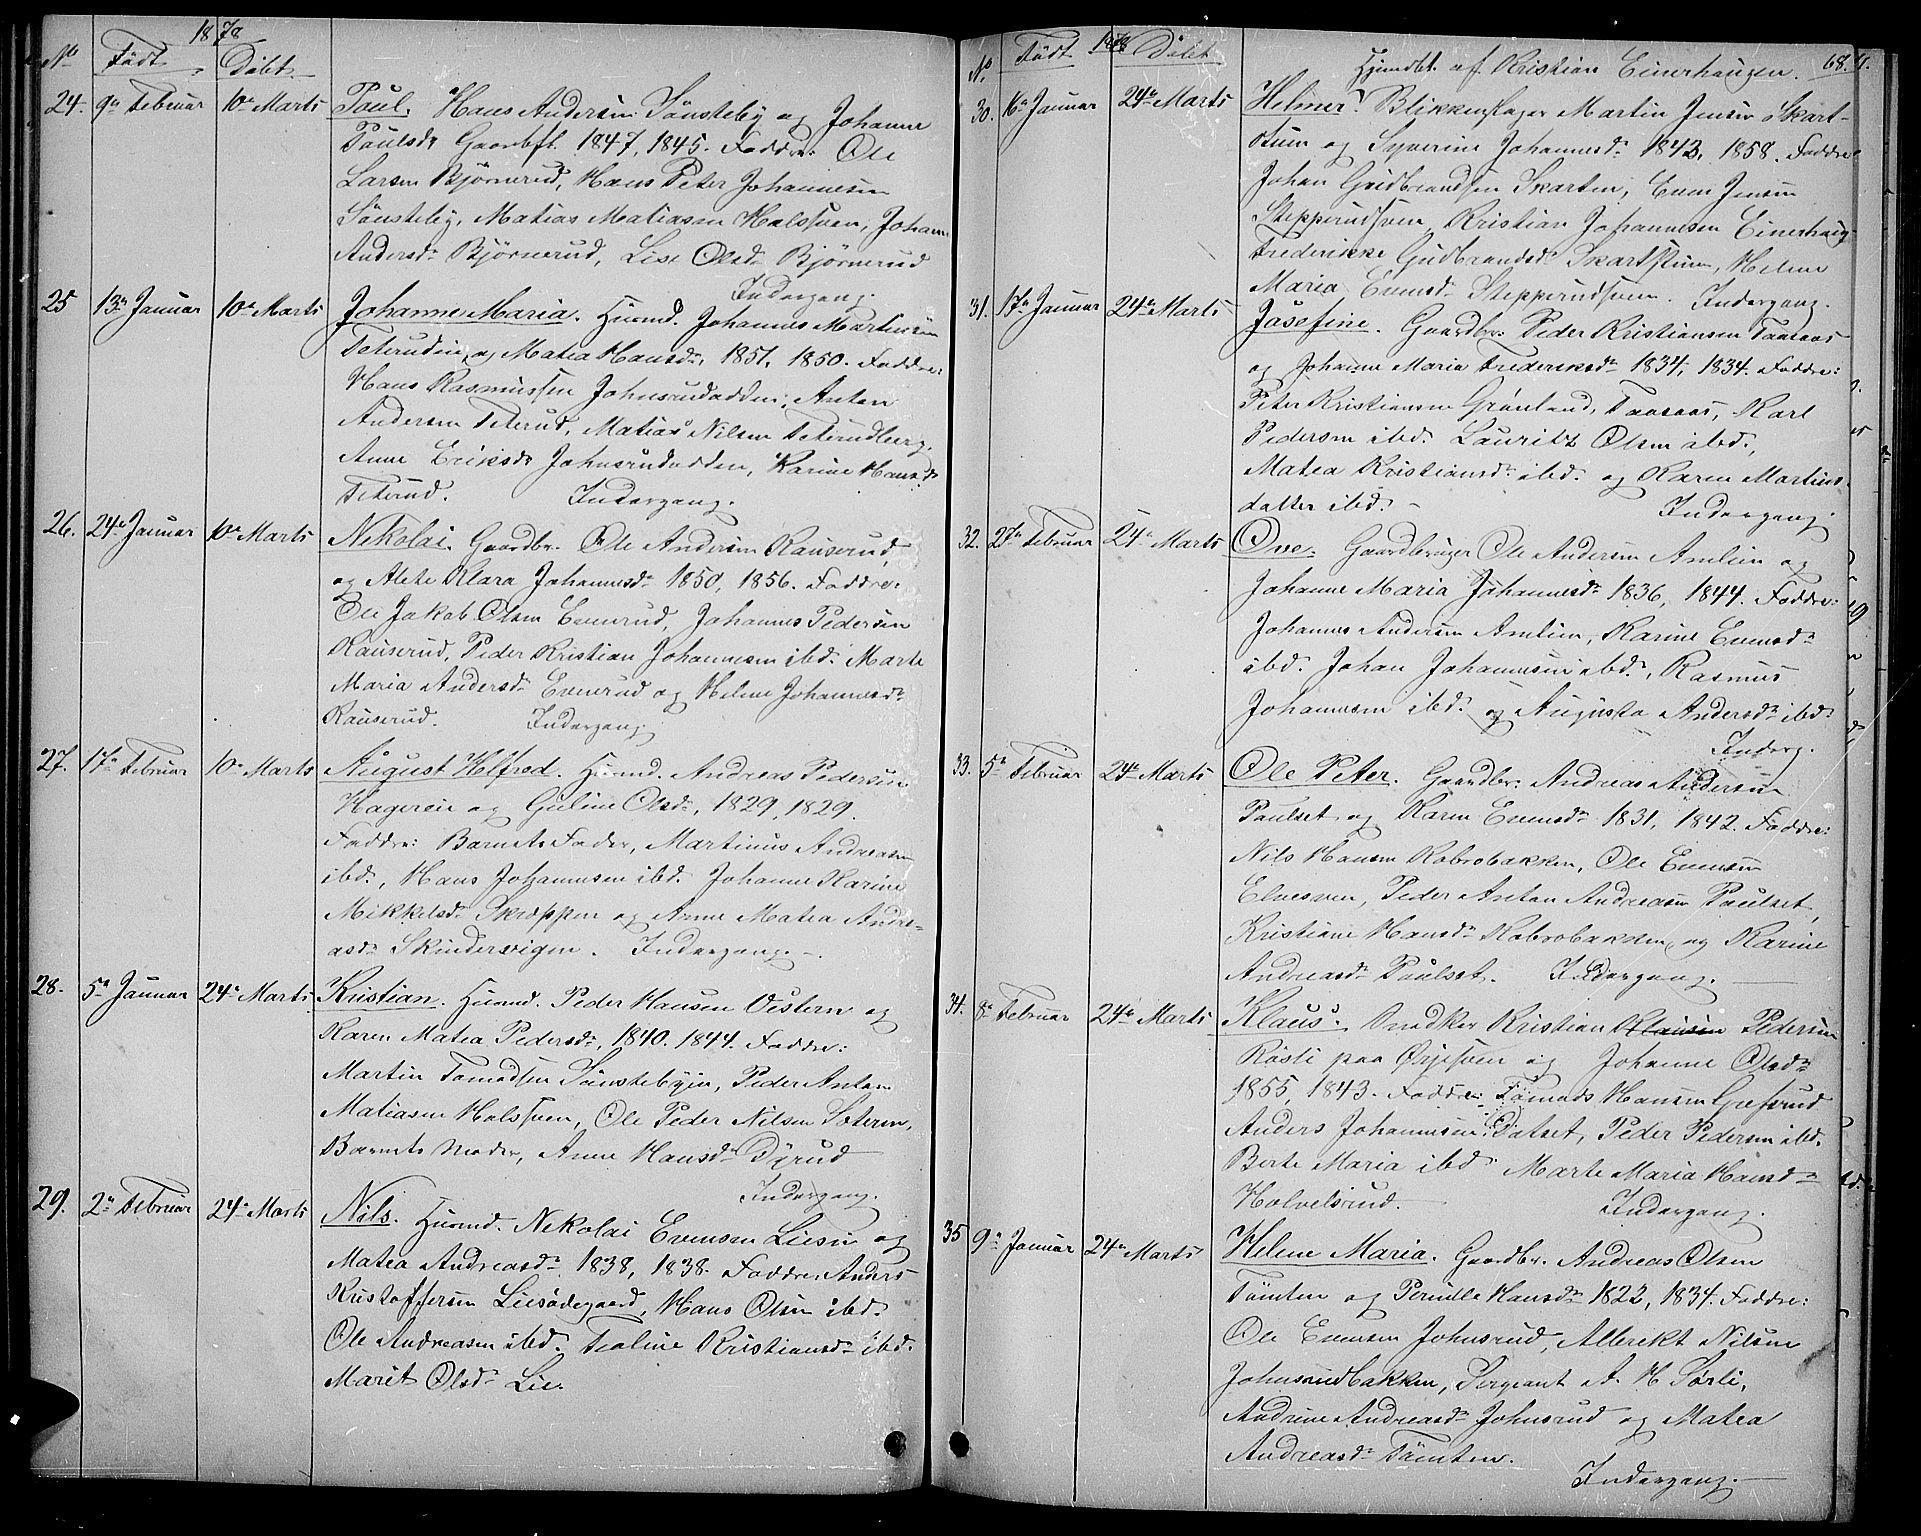 1878
No Födt Döbt
24. 9de Februar 10de Marts Paul. Hans Andersen Sönsteby og Johanne
Paulsdr Gaardbf. 1847, 1845. Faddre: Ole
Larsen Björnerud, Hans Peter Johannesen
Sönsteby, Matias Matiasen Holsveen, Johan
Andersdr Björnerud, Lise Olsdr Björnerud
Indergang.
25 13de Januar 10de Marts Johanne Maria. Husmd. Johannes Martinsen
Teterudeie og Matea Hansdr, 1851, 1850. Faddre:
Hans Rasmussen Johnsrudødden, Anton
Andersen Teterud, Matias Nilsen Teterudberg,
Anne Eriksdr Johnsrudødden, Karine Hansdr
Teterud. Indergang.
26. 24de Januar 10de Marts Nikolai. Gaardbr. Ole Andersen Rauserud,
og Alete Klara Johannesdr 1850, 1856. Faddre:
Ole Jakob Olsen Evenrud, Johannes Pedersen
Rauserud, Peder Kristian Johannesen ibd. Marte
Maria Andersdr Evenrud og Helene Johannesdr
Rauserud. Indergang
27. 17de Februar 10de Marts August Helfred. Husmd. Andreas Pedersen
Hagereie og Guline Olsdr, 1829, 1829.
Faddre: Barnets Fader, Martinus Andreasen
ibd., Hans Johannesen ibd. Johanne Karine
Mikkelsdr Skroppen og Anne Matea Andre-
asdr Skindervigen. Indergang.
28. 5te Januar 24de Marts Kristian. Husmd. Peder Hansen Oestern og
Karen Matea Pedersdr, 1840. 1844. Faddre:
Martin Tomassen Sönstebyeie, Peder Anton
Matiasen Holsveen, Ole Peder Nilsen Sætern,
Barnets Moder, Anne Hansdr Dyrud
Indergang.
29. 2de Februar 24de Marts Nils. Husmd. Nikolai Evensen Lieseie og
Matea Andreasdr 1838, 1838. Faddre: Anders
Kristoffersen Liesødegaard, Hans Olsen ibd.
Ole Andreasen ibd. Paaline Kristiansdr ibd.
Marit Olsdr Lie.
1878 68.
No Födt Döbt
Hjemdbt. af Kristian Einerhaugen.
30. 16de Januar 24de Marts Helmer. Blikkenslager Martin Jensen Skart-
stuen og Syverine Johannesdr 1843, 1858. Faddre
Johan Gudbrandsen Skarten, Even Jensen
Stepperudsveen, Kristian Johannesen Einerhaug
Frederikke Gudbrandsdr Skartstuen, Helene
Maria Evensdr Stepperudsveen. Indergang.
31. 17de Januar 24de Marts Josefine. Gaardbr. Peder Kristiansen Taasaas
og Johanne Maria Frederiksdr 1834, 1834. Faddre:
Peter Kristiansen Grönland, Taasaas, Karl
Pedersen ibd. Lauritz Olsen ibd.,
Matea Kristiansdr ibd. og Karen Martins-
datter ibd. Indergang.
32. 27de Februar 24de Marts Ove. Gaardbruger Ole Andersen Amlien og
Johanne Maria Johannesdr 1836, 1844. Faddre:
Johannes Andersen Amlien, Karine Evensdr
ibd. Johan Johannesen ibd., Rasmus
Johannesen ibd. og Augusta Andersdr ibd.
Inderg.
33. 5te Februar 24de Marts Ole Peter. Gaardbr. Andreas Andersen
Paulset og Karen Evensdr 1831, 1842. Faddre:
Nils Hansen Robrobakken, Ole Evensen
Elvesveen, Peder Anton Andreasen Paulset,
Kristiane Hansdr Robrobakken, og Karine
Andreasdr Paulset. Indergang.
34. 8de Februar 24de Marts Klaus. Snedker Kristian Klausen Pedersen
Rösti paa Örjesveen og Johanne Olsdr
1855, 1843. Faddre: Tomas Hansen Græsrud
Anders Johannesen Dalset, Peder Pedersen ibd.
Berte Maria ibd. Marte Maria Hansdr
Holvelsrud. Indergang.
35 9de Januar 24de Marts Helene Maria. Gaardbr. Andreas Olsen
Tömten og Pernille Hansdr 1822, 1834. Faddre:
Ole Evensen Johnsrud, Albrekt Nilsen
Johnsrudbakken, Sergeant A. H. Sørli,
Andrine Andreasdr Johnsrud og Matea
Andreasdr Tömten.
Indergang.